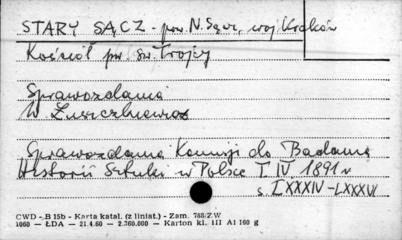 STARY SĄCZ - pow. N. Sącz, woj. Kraków
Kościół pw. św. Trójcy
Sprawozdania
W Łuszczkiewicz
Sprawozdania Komisji do Badania
Historii Sztuki w Polsce T IV 1891 r
s. LXXXIV-LXXXVI
CWD - B 15b - Karta katal. (z liniat.) - Zam. 788/ZW
1060 — ŁDA — 21.4.60 - 2.360.000 — Karton kl. III A1 160 g